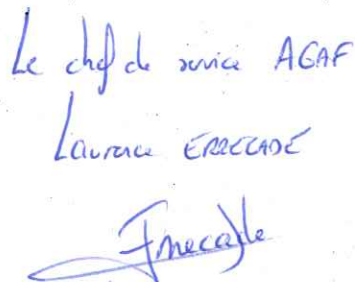 Le chef de service AGAF
Laurence ERRECADE
Errecade